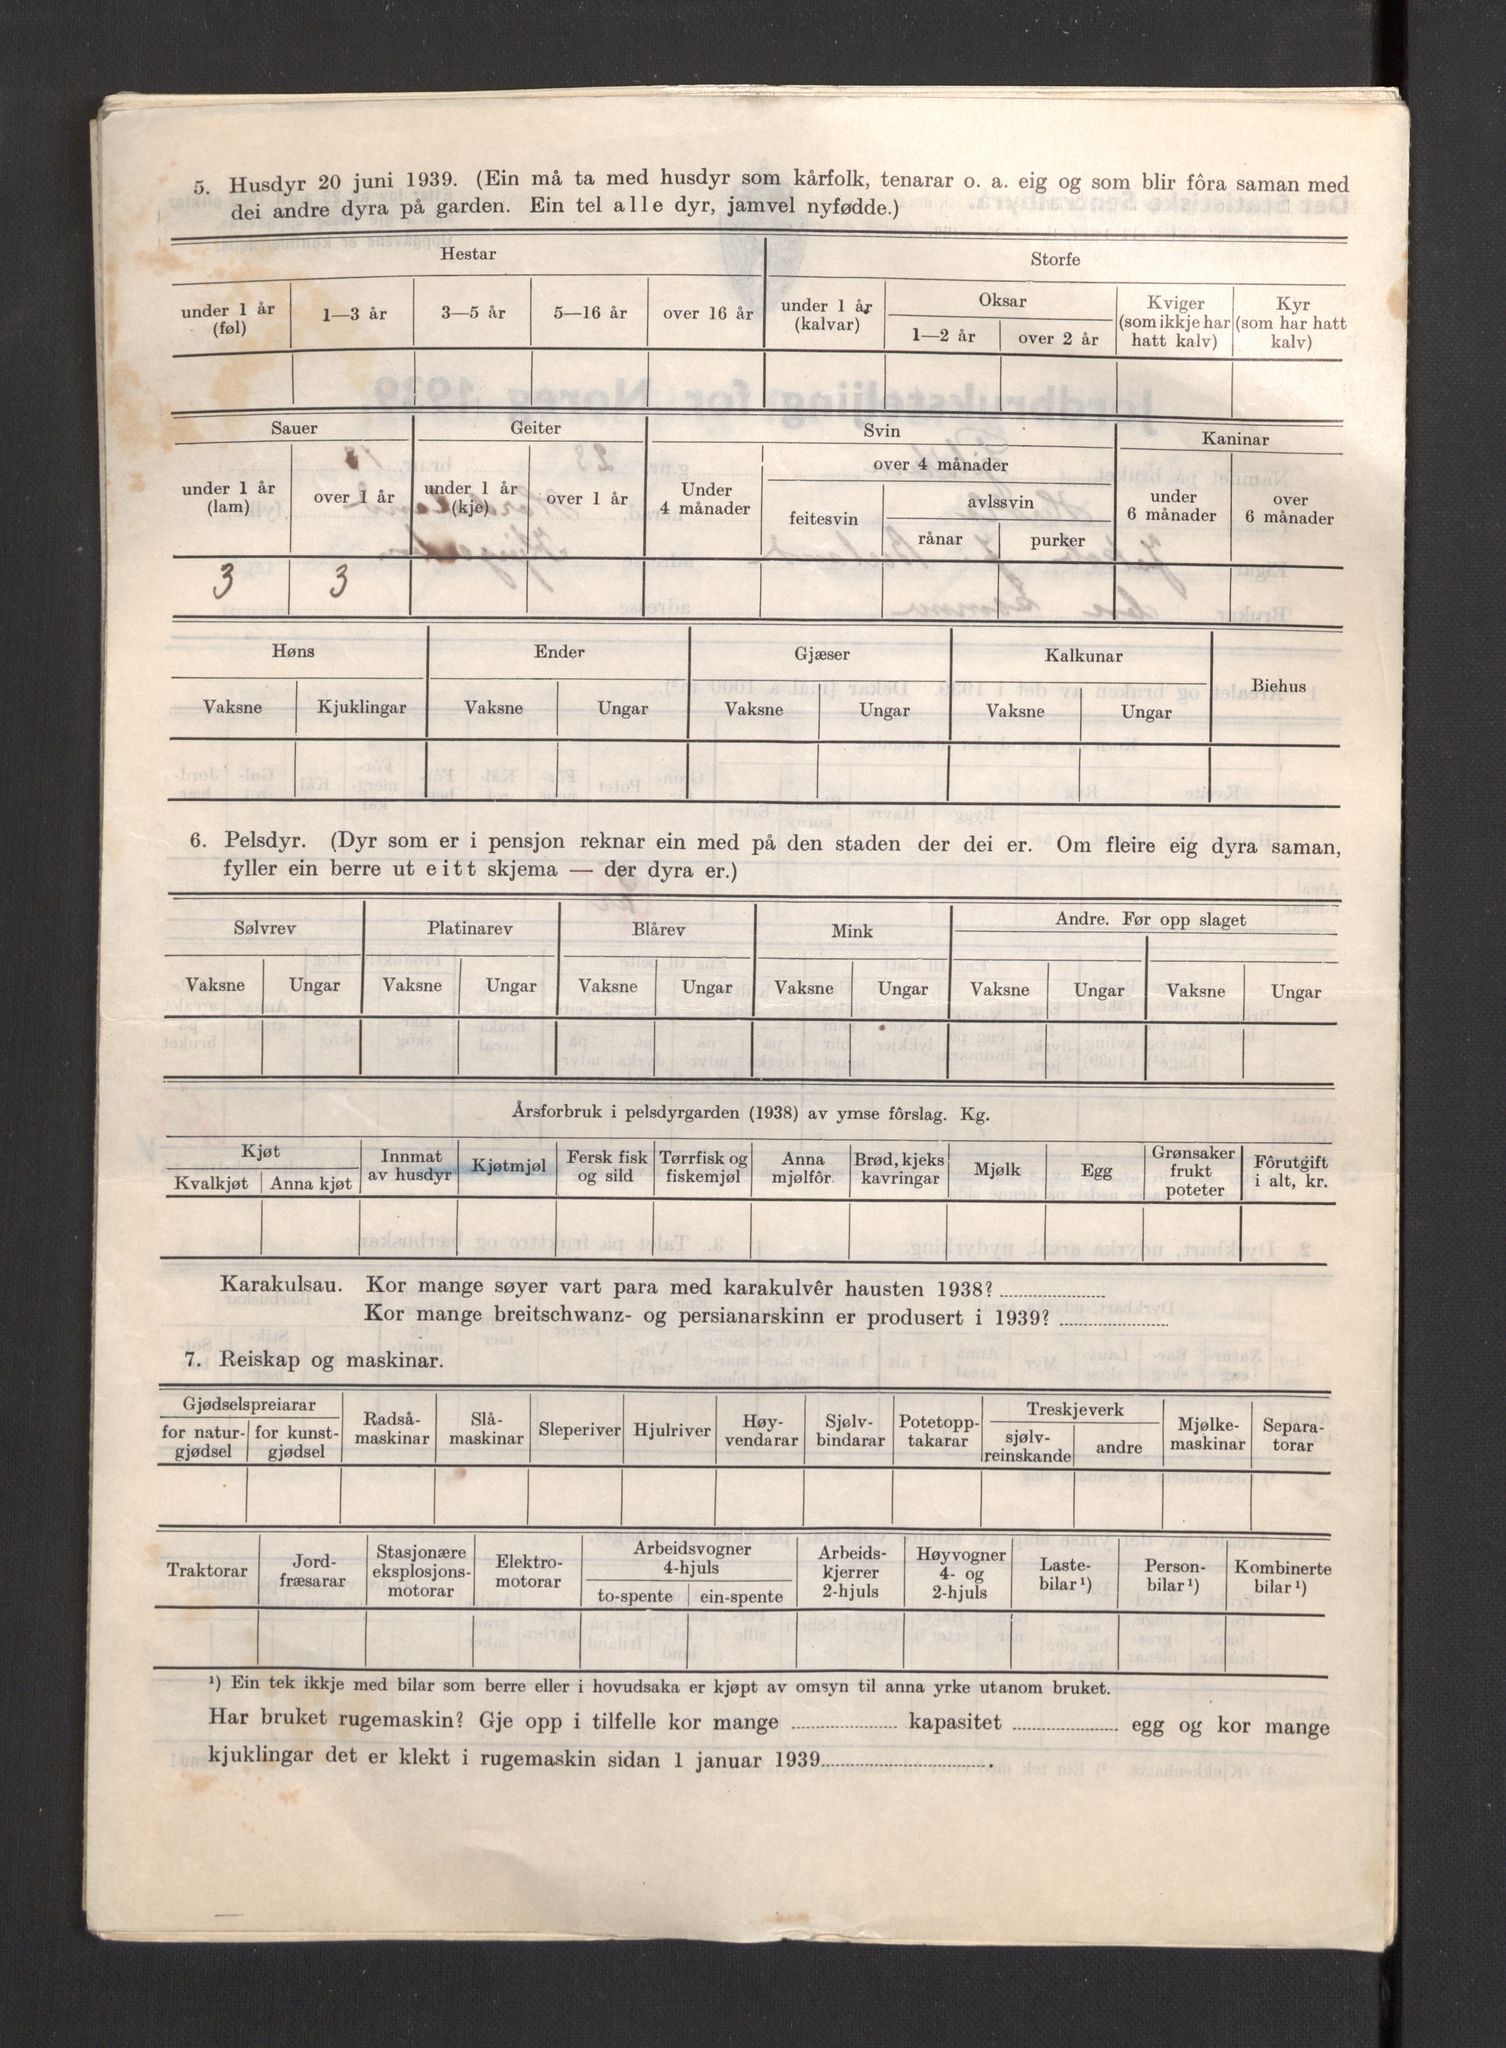 5. Husdyr 20 juni 1939. (Ein må ta med husdyr som kårfolk, tenarar o. a. eig og som blir fôra saman med
dei andre dyra på garden. Ein tel alle dyr, jamvel nyfødde.)
Hestar Storfe
under 1 år (føl) 1—3 år 3—5 år 5—16 år over 16 år under 1 år (kalvar) Oksar 1—2 år over 2 år Kviger (som ikkje har hatt kalv) Kyr (som har hatt kalv)
Sauer Geiter Svin Kaninar
under 1 år (lam) over 1 år under 1 år (kje) over 1 år Under 4 månader over 4 månader feitesvin avlssvin rånar purker under 6 månader over 6 månader
3 3
Høns Ender Gjæser Kalkunar Biehus
Vaksne Kjuklingar Vaksne Ungar Vaksne Ungar Vaksne Ungar
6. Pelsdyr. (Dyr som er i pensjon reknar ein med på den staden der dei er. Om fleire eig dyra saman,
fyller ein berre ut eitt skjema — der dyra er.)
Sølvrev Platinarev Blårev Mink Andre. Før opp slaget
Vaksne Ungar Vaksne Ungar Vaksne Ungar Vaksne Ungar Vaksne Ungar Vaksne Ungar
Årsforbruk i pelsdyrgarden (1938) av ymse fôrslag. Kg.
Kjøt Kvalkjøt Anna kjøt Innmat av husdyr Kjøtmjøl Fersk fisk og sild Tørrfisk og fiskemjøl Anna mjølfôr Brød, kjeks kavringar Mjølk Egg Grønsaker frukt poteter Fôrutgift i alt, kr.
Karakulsau. Kor mange søyer vart para med karakulvêr hausten 1938?
Kor mange breitschwanz- og persianarskinn er produsert i 1939?
7. Reiskap og maskinar.
Gjødselspreiarar for natur-gjødsel for kunst-gjødsel Radså-maskinar Slå-maskinar Sleperiver Hjulriver Høy-vendarar Sjølv-bindarar Potetopp-takarar Treskjeverk sjølv-reinskande andre Mjølke-maskinar Separa-torar
Traktorar Jord-fræsarar Stasjonære eksplosjons-motorar Elektro-motorar Arbeidsvogner 4-hjuls to-spente ein-spente Arbeids-kjerrer 2-hjuls Høyvogner 4- og 2-hjuls Laste-bilar ¹) Person-bilar ¹) Kombinerte bilar ¹)
¹) Ein tek ikkje med bilar som berre eller i hovudsaka er kjøpt av omsyn til anna yrke utanom bruket.
Har bruket rugemaskin? Gje opp i tilfelle kor mange kapasitet egg og kor mange
kjuklingar det er klekt i rugemaskin sidan 1 januar 1939.